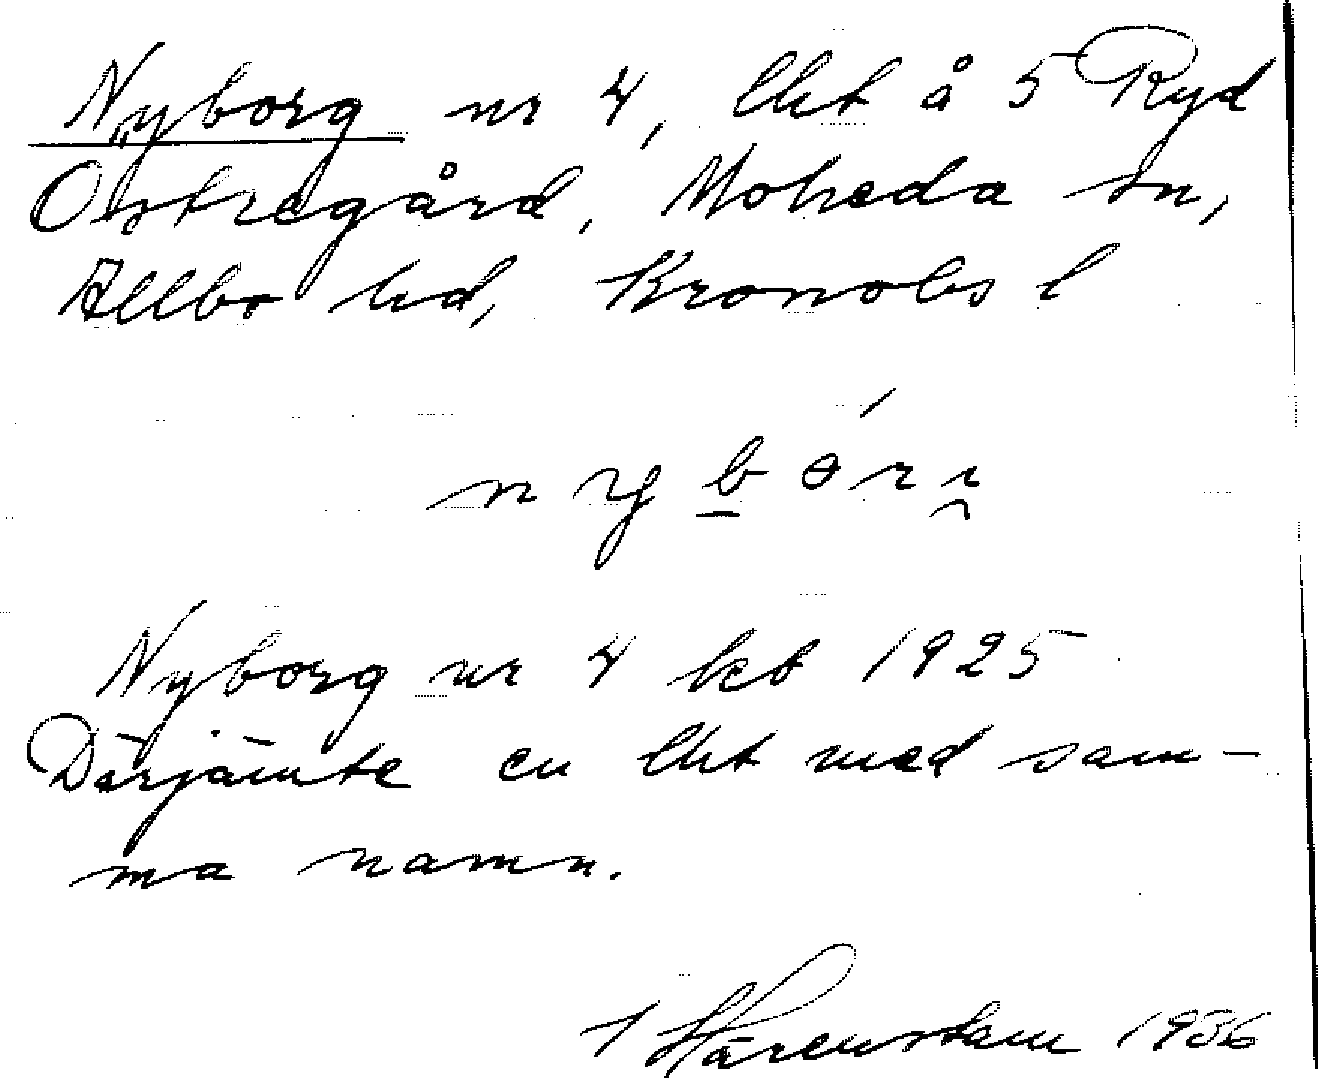 Nyborg nr 4, lht å 5 Ryd
Östregård, Moheda sn,
Allbo hd, Kronobs l
Nyborg nr 4 kb 1925
Därjämte en lht med sam-
ma namn.
Härenstam 1936